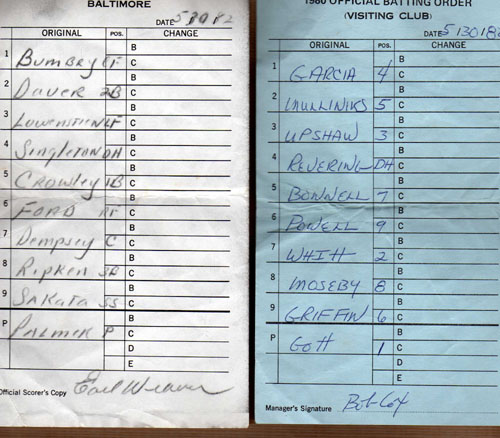 BALTIMORE
DATE 5/30/82
ORIGINAL POS. CHANGE
1 Bumbry CF B C
2 Dauer 2B B C
3 Lowenstein LF B C
4 Singleton DH B C
5 Crowley 1B B C
6 FORD RF B C
7 Dempsey C B C
8 Ripken 3B B C
9 SAKATA SS B C
P PALMER P B C D E
Official Scorer's Copy Earl Weaver
1980 OFFICIAL BATTING ORDER
(VISITING CLUB)
DATE 5/30/82
ORIGINAL POS. CHANGE
1 GARCIA 4 B C
2 MULLINIKS 5 B C
3 UPSHAW 3 B C
4 REVERING DH B C
5 BONNELL 7 B C
6 POWELL 9 B C
7 WHITT 2 B C
8 MOSEBY 8 B C
9 GRIFFIN 6 B C
P GOTT 1 B C D E
Manager's Signature Bob Cox